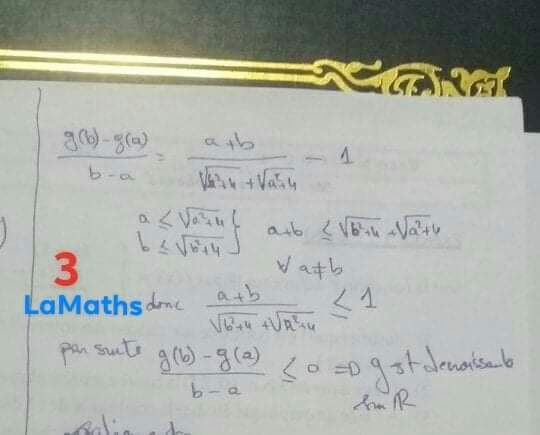 g(b)-g(a) / b-a = a+b / √b²+4 + √a²+4 - 1
a ≤ √a²+4 } a+b ≤ √b²+4 + √a²+4
b ≤ √b²+4
∀ a≠b
3
LaMaths
donc a+b / √b²+4 + √a²+4 ≤ 1
par suite g(b)-g(a) / b-a ≤ 0 => g st decroissante
sur IR